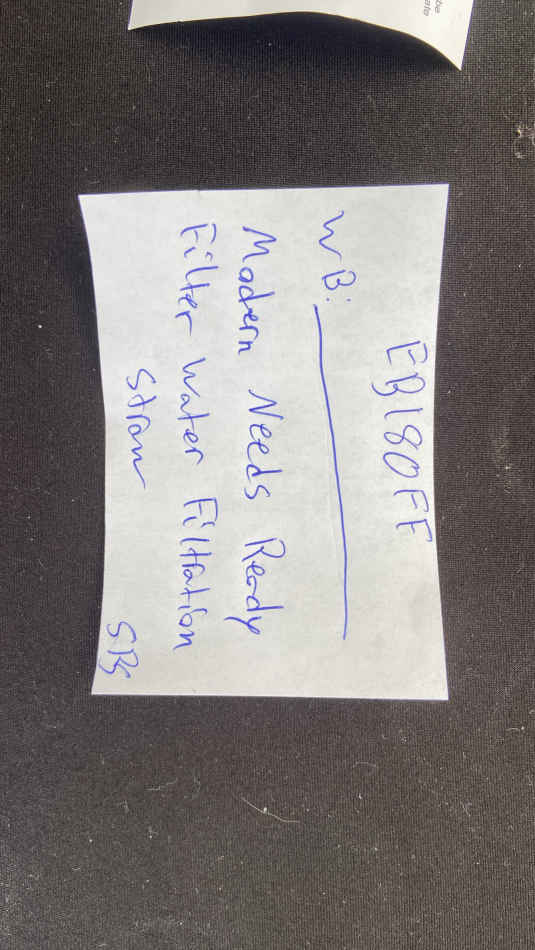 EB180FF
WB:
Modern Needs Ready
Filter Water Filtration
Straw